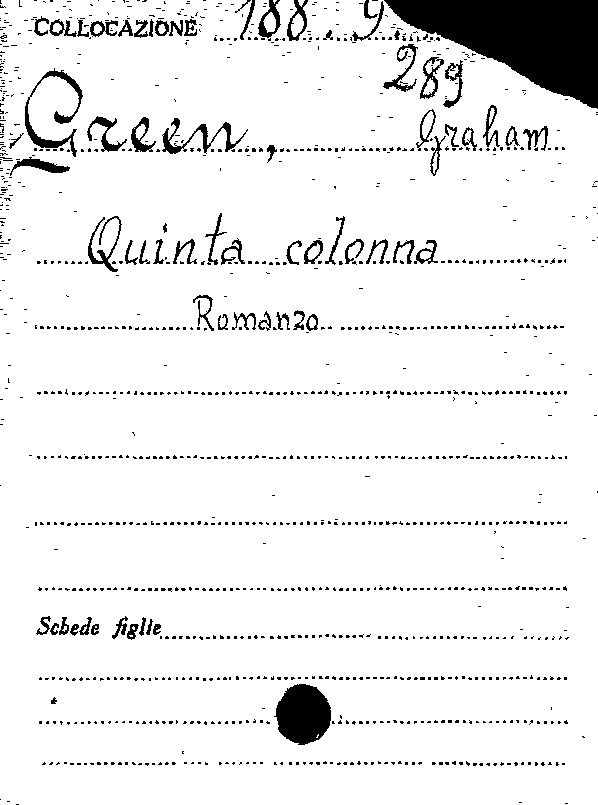 COLLOCAZIONE 188. 9.
289
Green, Graham
Quinta colonna
Romanzo
Schede figlie